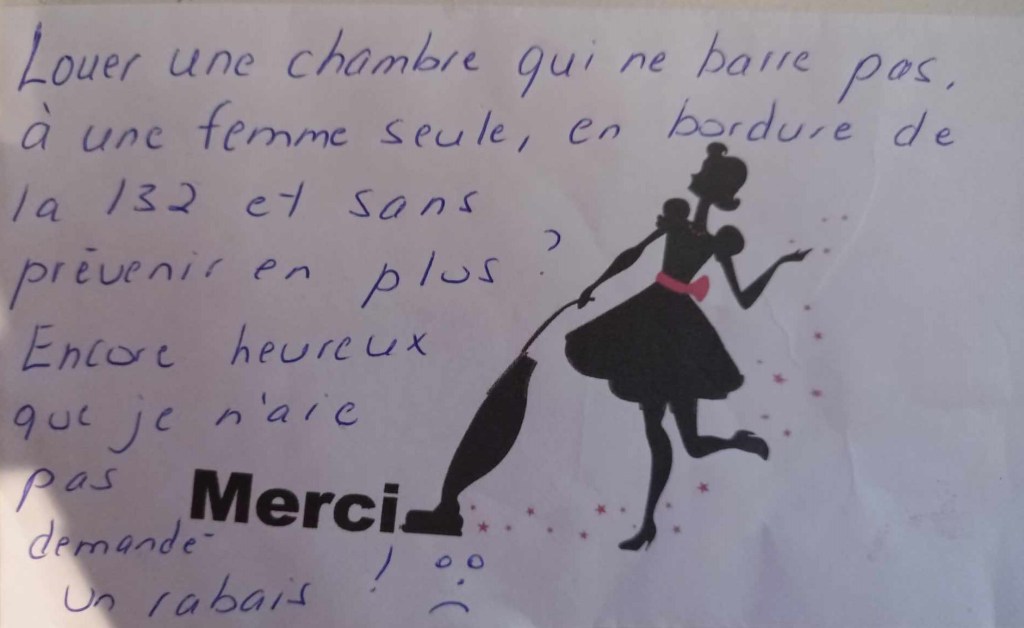 Louer une chambre qui ne barre pas,
à une femme seule, en bordure de
la 132 et sans
prévenir en plus ?
Encore heureux
que je n'aie
pas
Merci
demandé
un rabais !